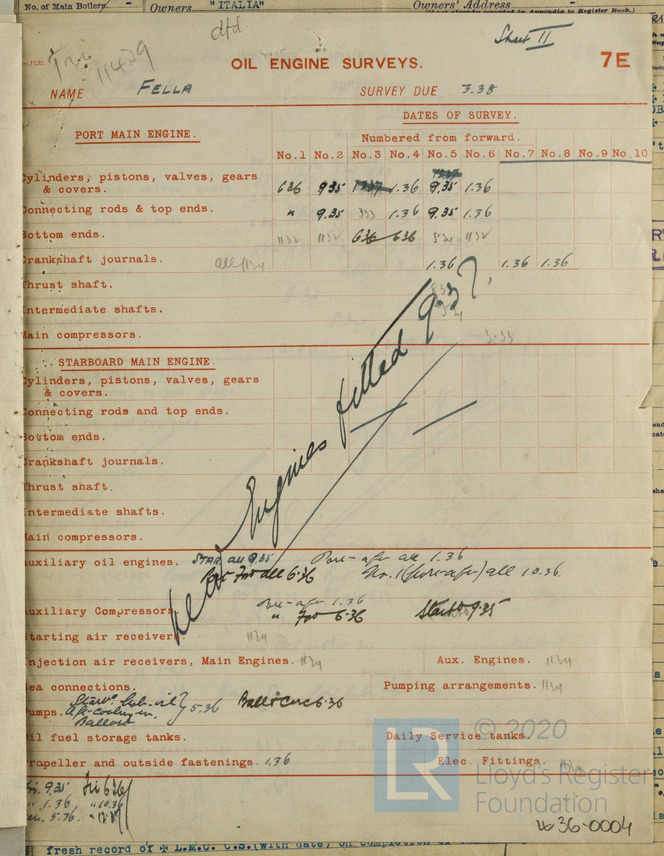 No. of Main Boilers
Owners "ITALIA"
Owners' Address
Sheet II
11429
OIL ENGINE SURVEYS.
7E
NAME FELLA
SURVEY DUE 3.38
DATES OF SURVEY.
PORT MAIN ENGINE.
Numbered from forward.
No.1 No.2 No.3 No.4 No.5 No.6 No.7 No.8 No.9 No.10
Cylinders, pistons, valves, gears
& covers. 636 9.35 1.36 9.35 1.36
Connecting rods & top ends. " 9.35 333 1.36 9.35 1.36
Bottom ends. 1132 1132 636 636 534 1132
Crankshaft journals. all 1134 1.36 1.36 1.36
Thrust shaft.
Intermediate shafts.
Main compressors. 3.33
New Engines fitted 9.37
STARBOARD MAIN ENGINE.
Cylinders, pistons, valves, gears
& covers.
Connecting rods and top ends.
Bottom ends.
Crankshaft journals.
Thrust shaft.
Intermediate shafts.
Main compressors.
Auxiliary oil engines. STAR. all 9.35 Port-aft all 1.36
Port Fwd all 6.36 No.1 (port-aft) all 10.36
Auxiliary Compressors Port-aft 1.36
" Fwd 6.36 Starbd 9.35
Starting air receivers. 1134
Injection air receivers, Main Engines. 1134 Aux. Engines. 1134
Sea connections. Pumping arrangements. 1134
Pumps. Starbd Lub-oil
Aft-cooling
Ballast } 5.36 Ball & Circ 6.36
Oil fuel storage tanks. Daily Service tanks.
Propeller and outside fastenings. 1.36 Elec. Fittings. 1134
9.35 Fri 6.36
" 1.36 " 10.36
5.36
© 2020
LR
Lloyd's Register
Foundation
W36-0004
fresh record of ✠ L.M.C. C.S. (with date) on completion of the